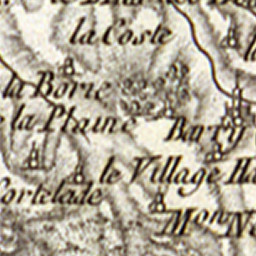 la Coste
la Borie
la Plaine Barry
le Village Ha
Cortelade
Mon